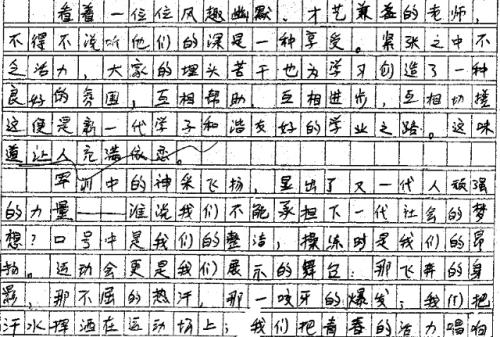 看着一位位风趣幽默、才艺兼备的老师，
不得不说听他们的深是一种享受。紧张之中不
乏活力，大家的埋头苦干也为学习创造了一种
良好的氛围，互相帮助，互相进步，互相切搓
这便是新一代学子和谐友好的学业之路。这味
道让人充满依恋。
军训中的神采飞扬，显出了又一代人顽强
的力量——谁说我们不能承担下一代社会的梦
想？口号中是我们的整洁，操练时是我们的昂
扬。运动会更是我们展示的舞台：那飞奔的身
影，那不屈的热汗，那一咬牙的爆发；我们把
汗水挥洒在运动场上；我们把青春的活力唱响